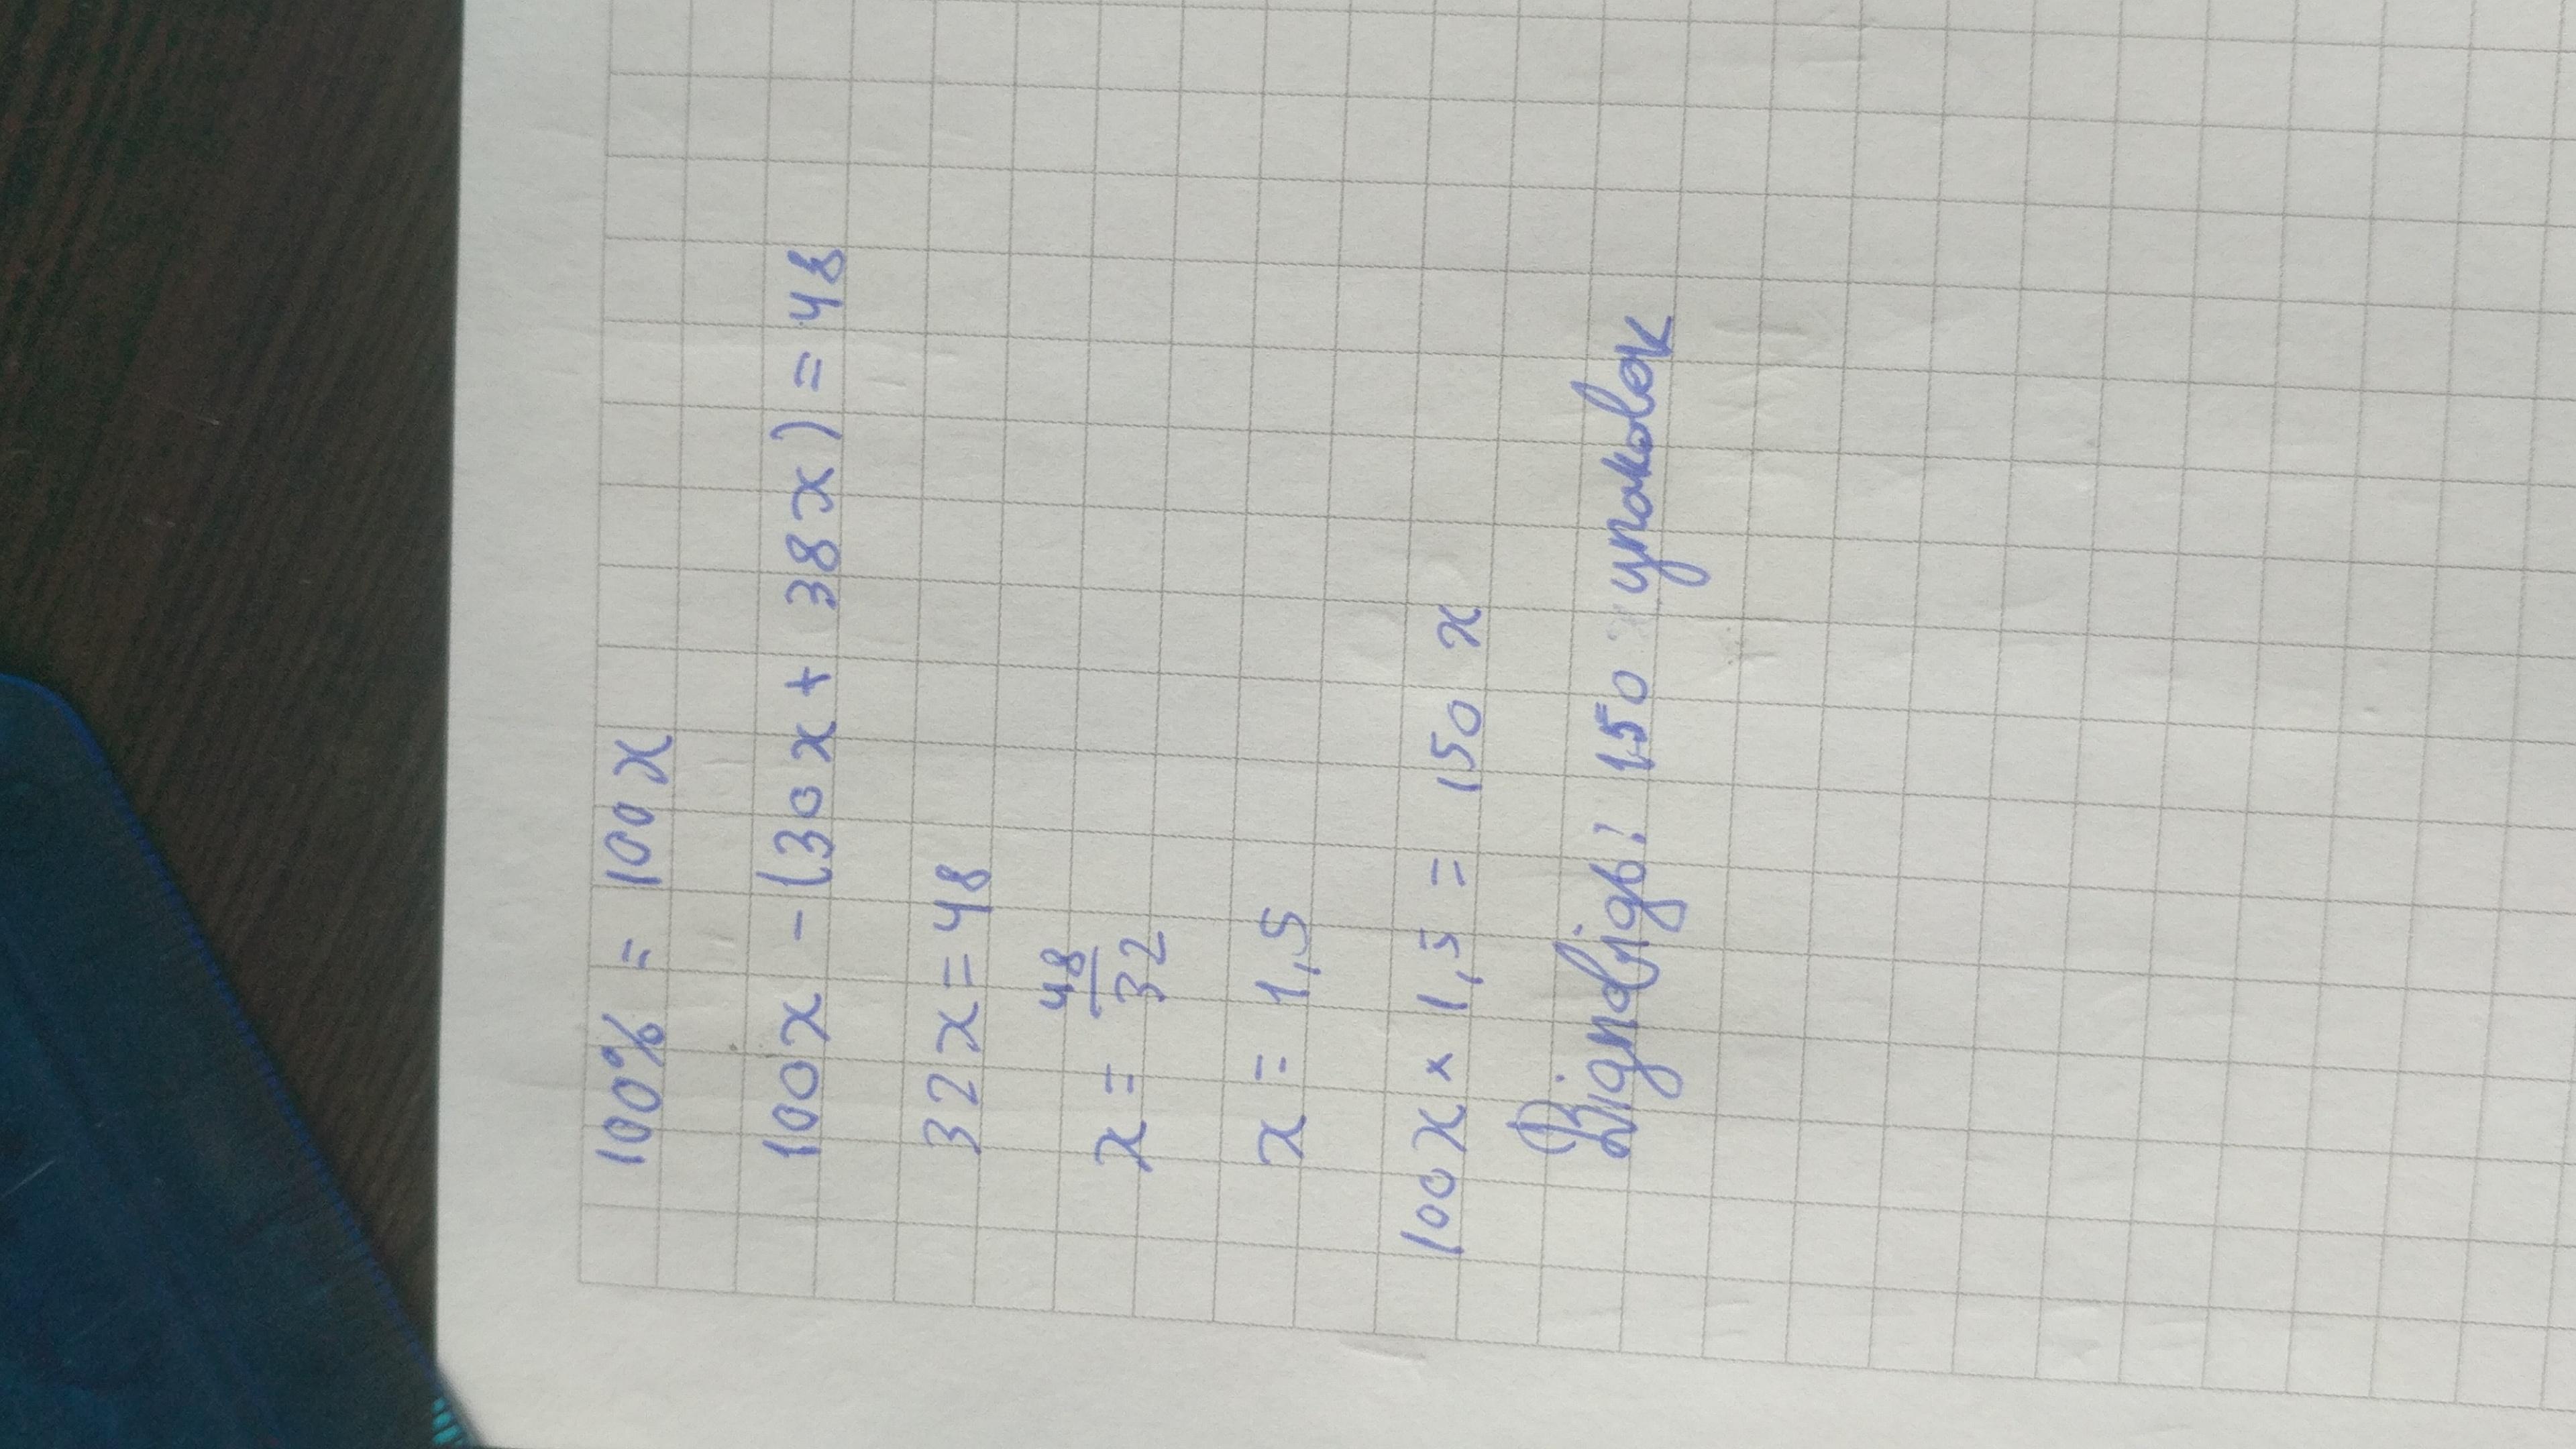 100% = 100x
100x - (30x + 38x) = 48
32x = 48
x = 48/32
x = 1,5
100x × 1,5 = 150 x
Відповідь: 150 упаковок